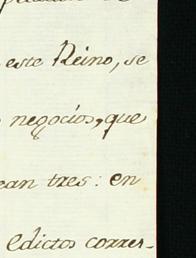 este Reino, se
negocios, que
ean tres: en
edictos corres-